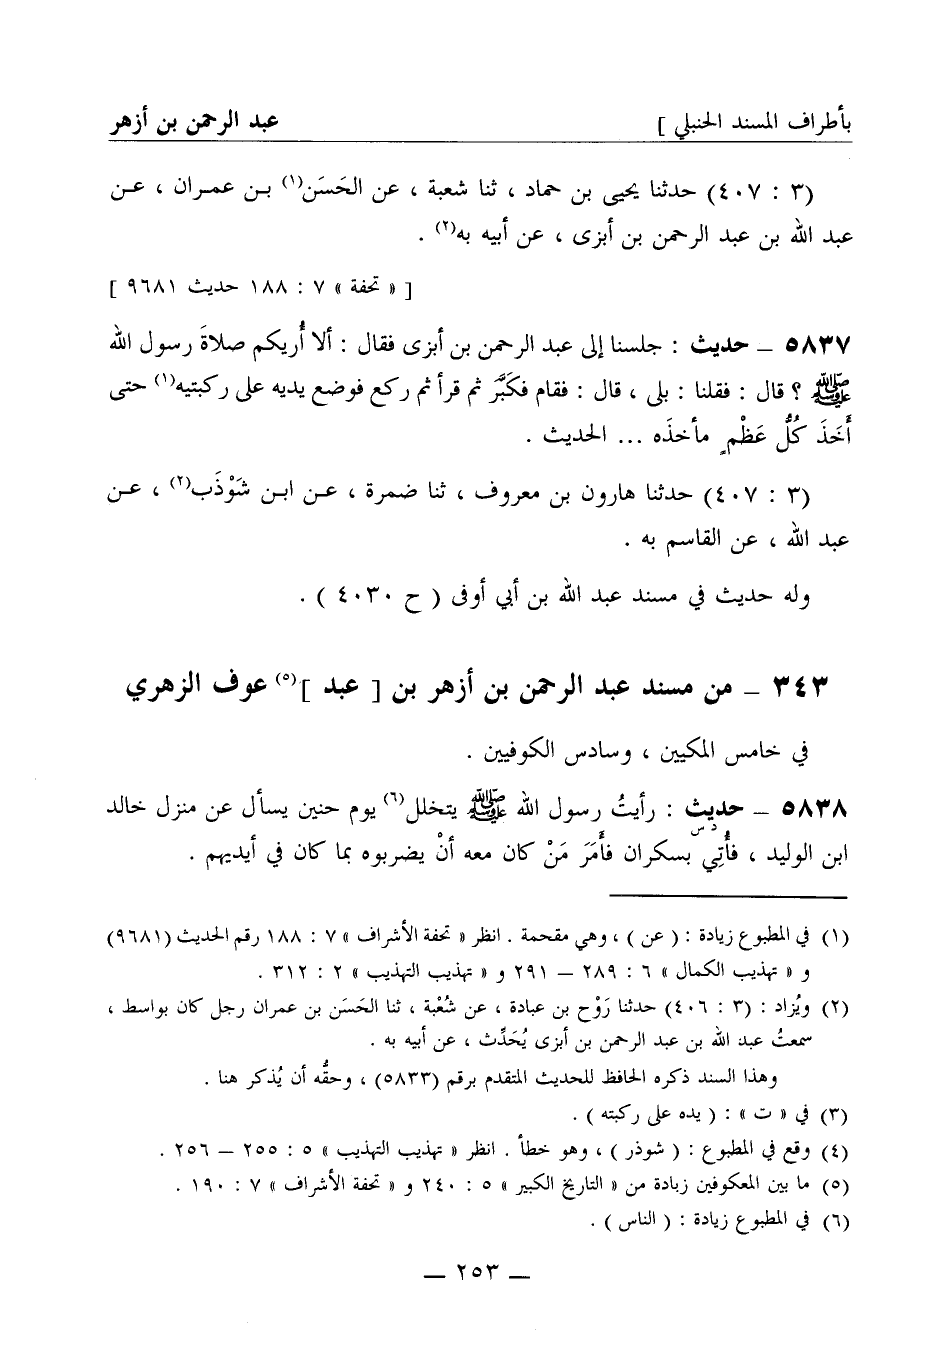 بأطراف المسند الحنبلي ] عبد الرحمن بن أزهر
(٣ : ٤٠٧) حدثنا يحيى بن حماد ، ثنا شعبة ، عن الحَسَن(١) بـن عمـران ، عـن
عبد الله بن عبد الرحمن بن أبزى ، عن أبيه به(٢) .
[ « تحفة » ٧ : ١٨٨ حديث ٩٦٨١ ]
٥٨٣٧ ـ حديث : جلسنا إلى عبد الرحمن بن أبزى فقال : ألا أُريكم صلاةَ رسول الله
ﷺ ؟ قال : فقلنا : بلى ، قال : فقام فكَبَّر ثم قرأ ثم ركع فوضع يديه على ركبتيه(١) حتى
أَخَذَ كُلُّ عَظْمٍ مأخذَه ... الحديث .
(٣ : ٤٠٧) حدثنا هارون بن معروف ، ثنا ضمرة ، عـن ابـن شَوْذَب(٢) ، عـن
عبد الله ، عن القاسم به .
وله حديث في مسند عبد الله بن أبي أوفى ( ح ٤٠٣٠ ) .
٣٤٣ ـ من مسند عبد الرحمن بن أزهر بن [ عبد ](٥) عوف الزهري
في خامس المكيين ، وسادس الكوفيين .
٥٨٣٨ ـ حديث : رأيتُ رسول الله ﷺ يتخلل(٦) يوم حنين يسأل عن منزل خالد
د س
ابن الوليد ، فأُتِي بسكران فأَمَرَ مَنْ كان معه أنْ يضربوه بما كان في أيديهم .
(١) في المطبوع زيادة : ( عن ) ، وهي مقحمة . انظر « تحفة الأشراف » ٧ : ١٨٨ رقم الحديث (٩٦٨١)
و « تهذيب الكمال » ٦ : ٢٨٩ – ٢٩١ و « تهذيب التهذيب » ٢ : ٣١٢ .
(٢) ويُزاد : (٣ : ٤٠٦) حدثنا رَوْح بن عبادة ، عن شُعْبة ، ثنا الحَسَن بن عمران رجل كان بواسط ،
سمعتُ عبد الله بن عبد الرحمن بن أبزى يُحَدِّث ، عن أبيه به .
وهذا السند ذكره الحافظ للحديث المتقدم برقم (٥٨٣٣) ، وحقُّه أن يُذكر هنا .
(٣) في « ت » : ( يده على ركبته ) .
(٤) وقع في المطبوع : ( شوذر ) ، وهو خطأ . انظر « تهذيب التهذيب » ٥ : ٢٥٥ – ٢٥٦ .
(٥) ما بين المعكوفين زيادة من « التاريخ الكبير » ٥ : ٢٤٠ و « تحفة الأشراف » ٧ : ١٩٠ .
(٦) في المطبوع زيادة : ( الناس ) .
ـ ٢٥٣ ـ